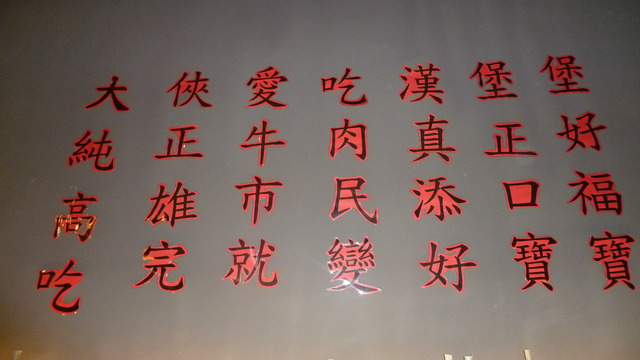 大俠愛吃漢堡堡
純正牛肉真正好
高雄市民添口福
吃完就變好寶寶